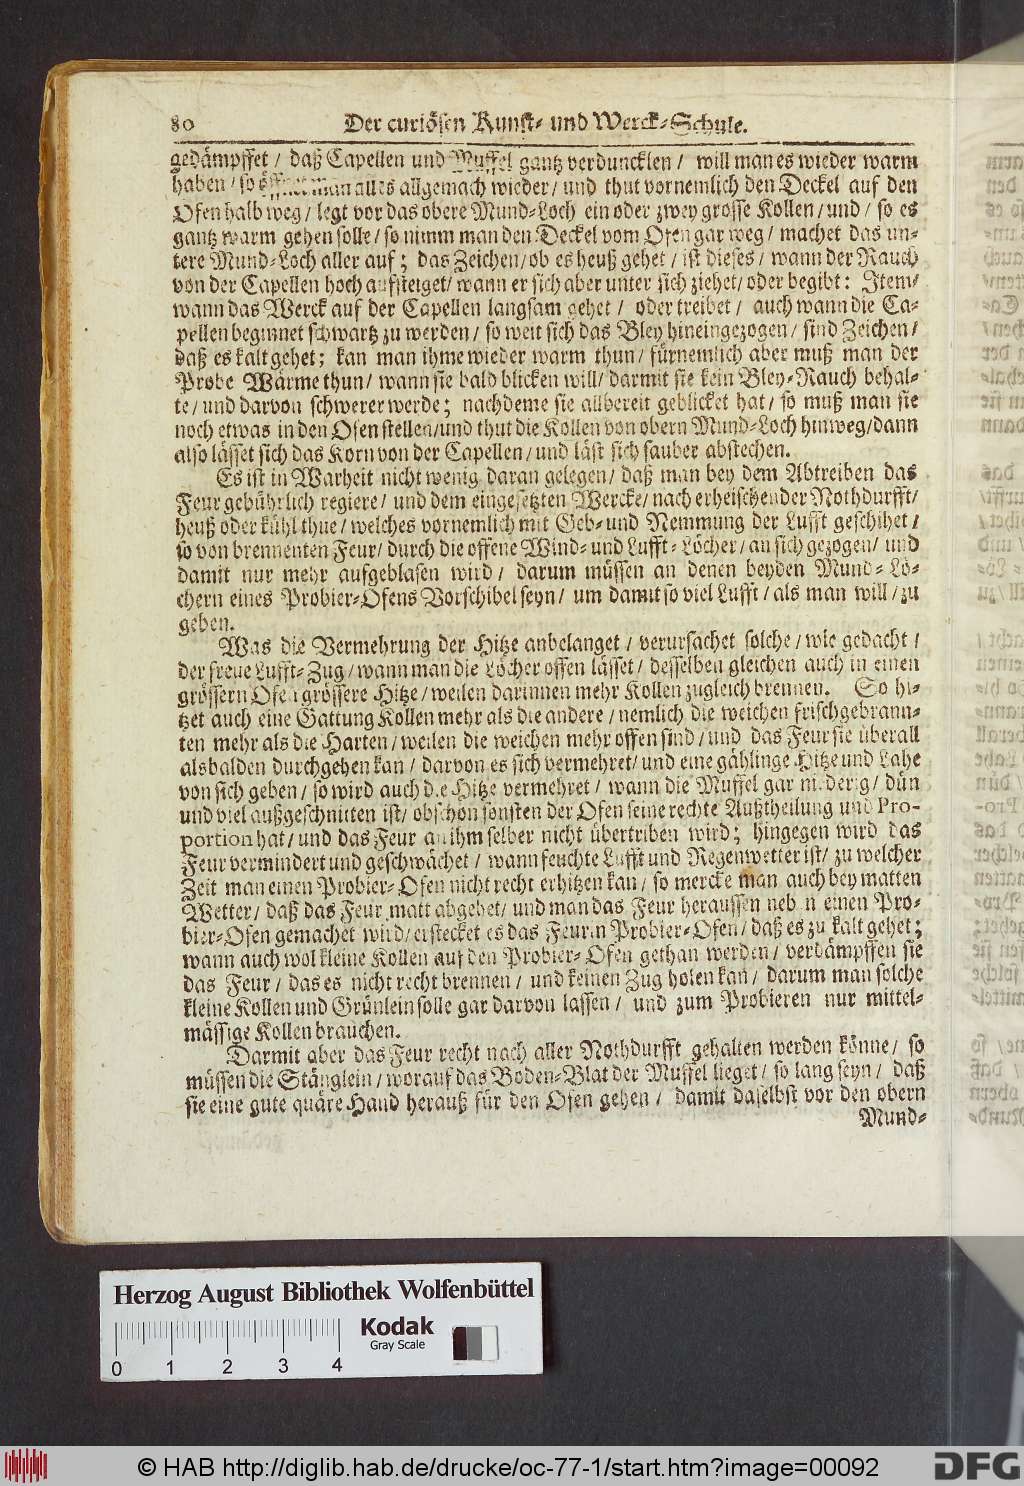 80 Der curiösen Kunst- und Werck-Schule.
gedämpffet / daß Capellen und Muffel gantz verduncklen / will man es wieder warm
haben / so öffnet man alles allgemach wieder / und thut vornemlich den Deckel auf den
Ofen halb weg / legt vor das obere Mund-Loch ein oder zwey grosse Kollen / und / so es
gantz warm gehen solle / so nimm man den Deckel vom Ofen gar weg / machet das un-
tere Mund-Loch aller auf; das Zeichen / ob es heuß gehet / ist dieses / wann der Rauch
von der Capellen hoch aufsteiget / wann er sich aber unter sich ziehet / oder begibt: Item /
wann das Werck auf der Capellen langsam gehet / oder treibet / auch wann die Ca-
pellen beginnet schwartz zu werden / so weit sich das Bley hineingezogen / sind Zeichen /
daß es kalt gehet; kan man ihme wieder warm thun / fürnemlich aber muß man der
Probe Wärme thun / wann sie bald blicken will / darmit sie kein Bley-Rauch behal-
te / und darvon schwerer werde; nachdeme sie allbereit geblicket hat / so muß man sie
noch etwas in den Ofen stellen / und thut die Kollen von obern Mund-Loch hinweg / dann
also lässet sich das Korn von der Capellen / und läst sich sauber abstechen.
Es ist in Warheit nicht wenig daran gelegen / daß man bey dem Abtreiben das
Feur gebührlich regiere / und dem eingesetzten Wercke / nach erheischender Nothdurfft /
heuß oder kühl thue / welches vornemlich mit Geb- und Nemmung der Lufft geschihet /
so von brennenten Feur / durch die offene Wind- und Lufft-Löcher / an sich gezogen / und
damit nur mehr aufgeblasen wird / darum müssen an denen beyden Mund-Lö-
chern eines Probier-Ofens Vorschibel seyn / um damit so viel Lufft / als man will / zu
geben.
Was die Vermehrung der Hitze anbelanget / verursachet solche / wie gedacht /
der freye Lufft-Zug / wann man die Löcher offen lässet / desselben gleichen auch in einen
grössern Ofen grössere Hitze / weilen darinnen mehr Kollen zugleich brennen. So hi-
tzet auch eine Gattung Kollen mehr als die andere / nemlich die weichen frischgebrann-
ten mehr als die Harten / weilen die weichen mehr offen sind / und das Feur sie überall
alsbalden durchgehen kan / darvon es sich vermehret / und eine gählinge Hitze und Lahe
von sich geben / so wird auch die Hitze vermehret / wann die Muffel gar niderig / dün
und viel außgeschnitten ist / obschon sonsten der Ofen seine rechte Außtheilung und Pro-
portion hat / und das Feur an ihm selber nicht übertriben wird; hingegen wird das
Feur vermindert und geschwächet / wann feuchte Lufft und Regenwetter ist / zu welcher
Zeit man einen Probier-Ofen nicht recht erhitzen kan / so mercke man auch bey matten
Wetter / daß das Feur matt abgehet / und man das Feur heraussen neben einen Pro-
bier-Ofen gemachet wird / erstecket es das Feur in Probier-Ofen / daß es zu kalt gehet;
wann auch wol kleine Kollen auf den Probier-Ofen gethan werden / verdämpffen sie
das Feur / das es nicht recht brennen / und keinen Zug holen kan / darum man solche
kleine Kollen und Grünlein solle gar darvon lassen / und zum Probieren nur mittel-
mässige Kollen brauchen.
Darmit aber das Feur recht nach aller Nothdurfft gehalten werden könne / so
müssen die Stänglein / worauf das Boden-Blat der Muffel lieget / so lang seyn / daß
sie eine gute quäre Hand herauß für den Ofen gehen / damit daselbst vor den obern
Mund-
Herzog August Bibliothek Wolfenbüttel
Kodak
Gray Scale
0 1 2 3 4
© HAB http://diglib.hab.de/drucke/oc-77-1/start.htm?image=00092
DFG